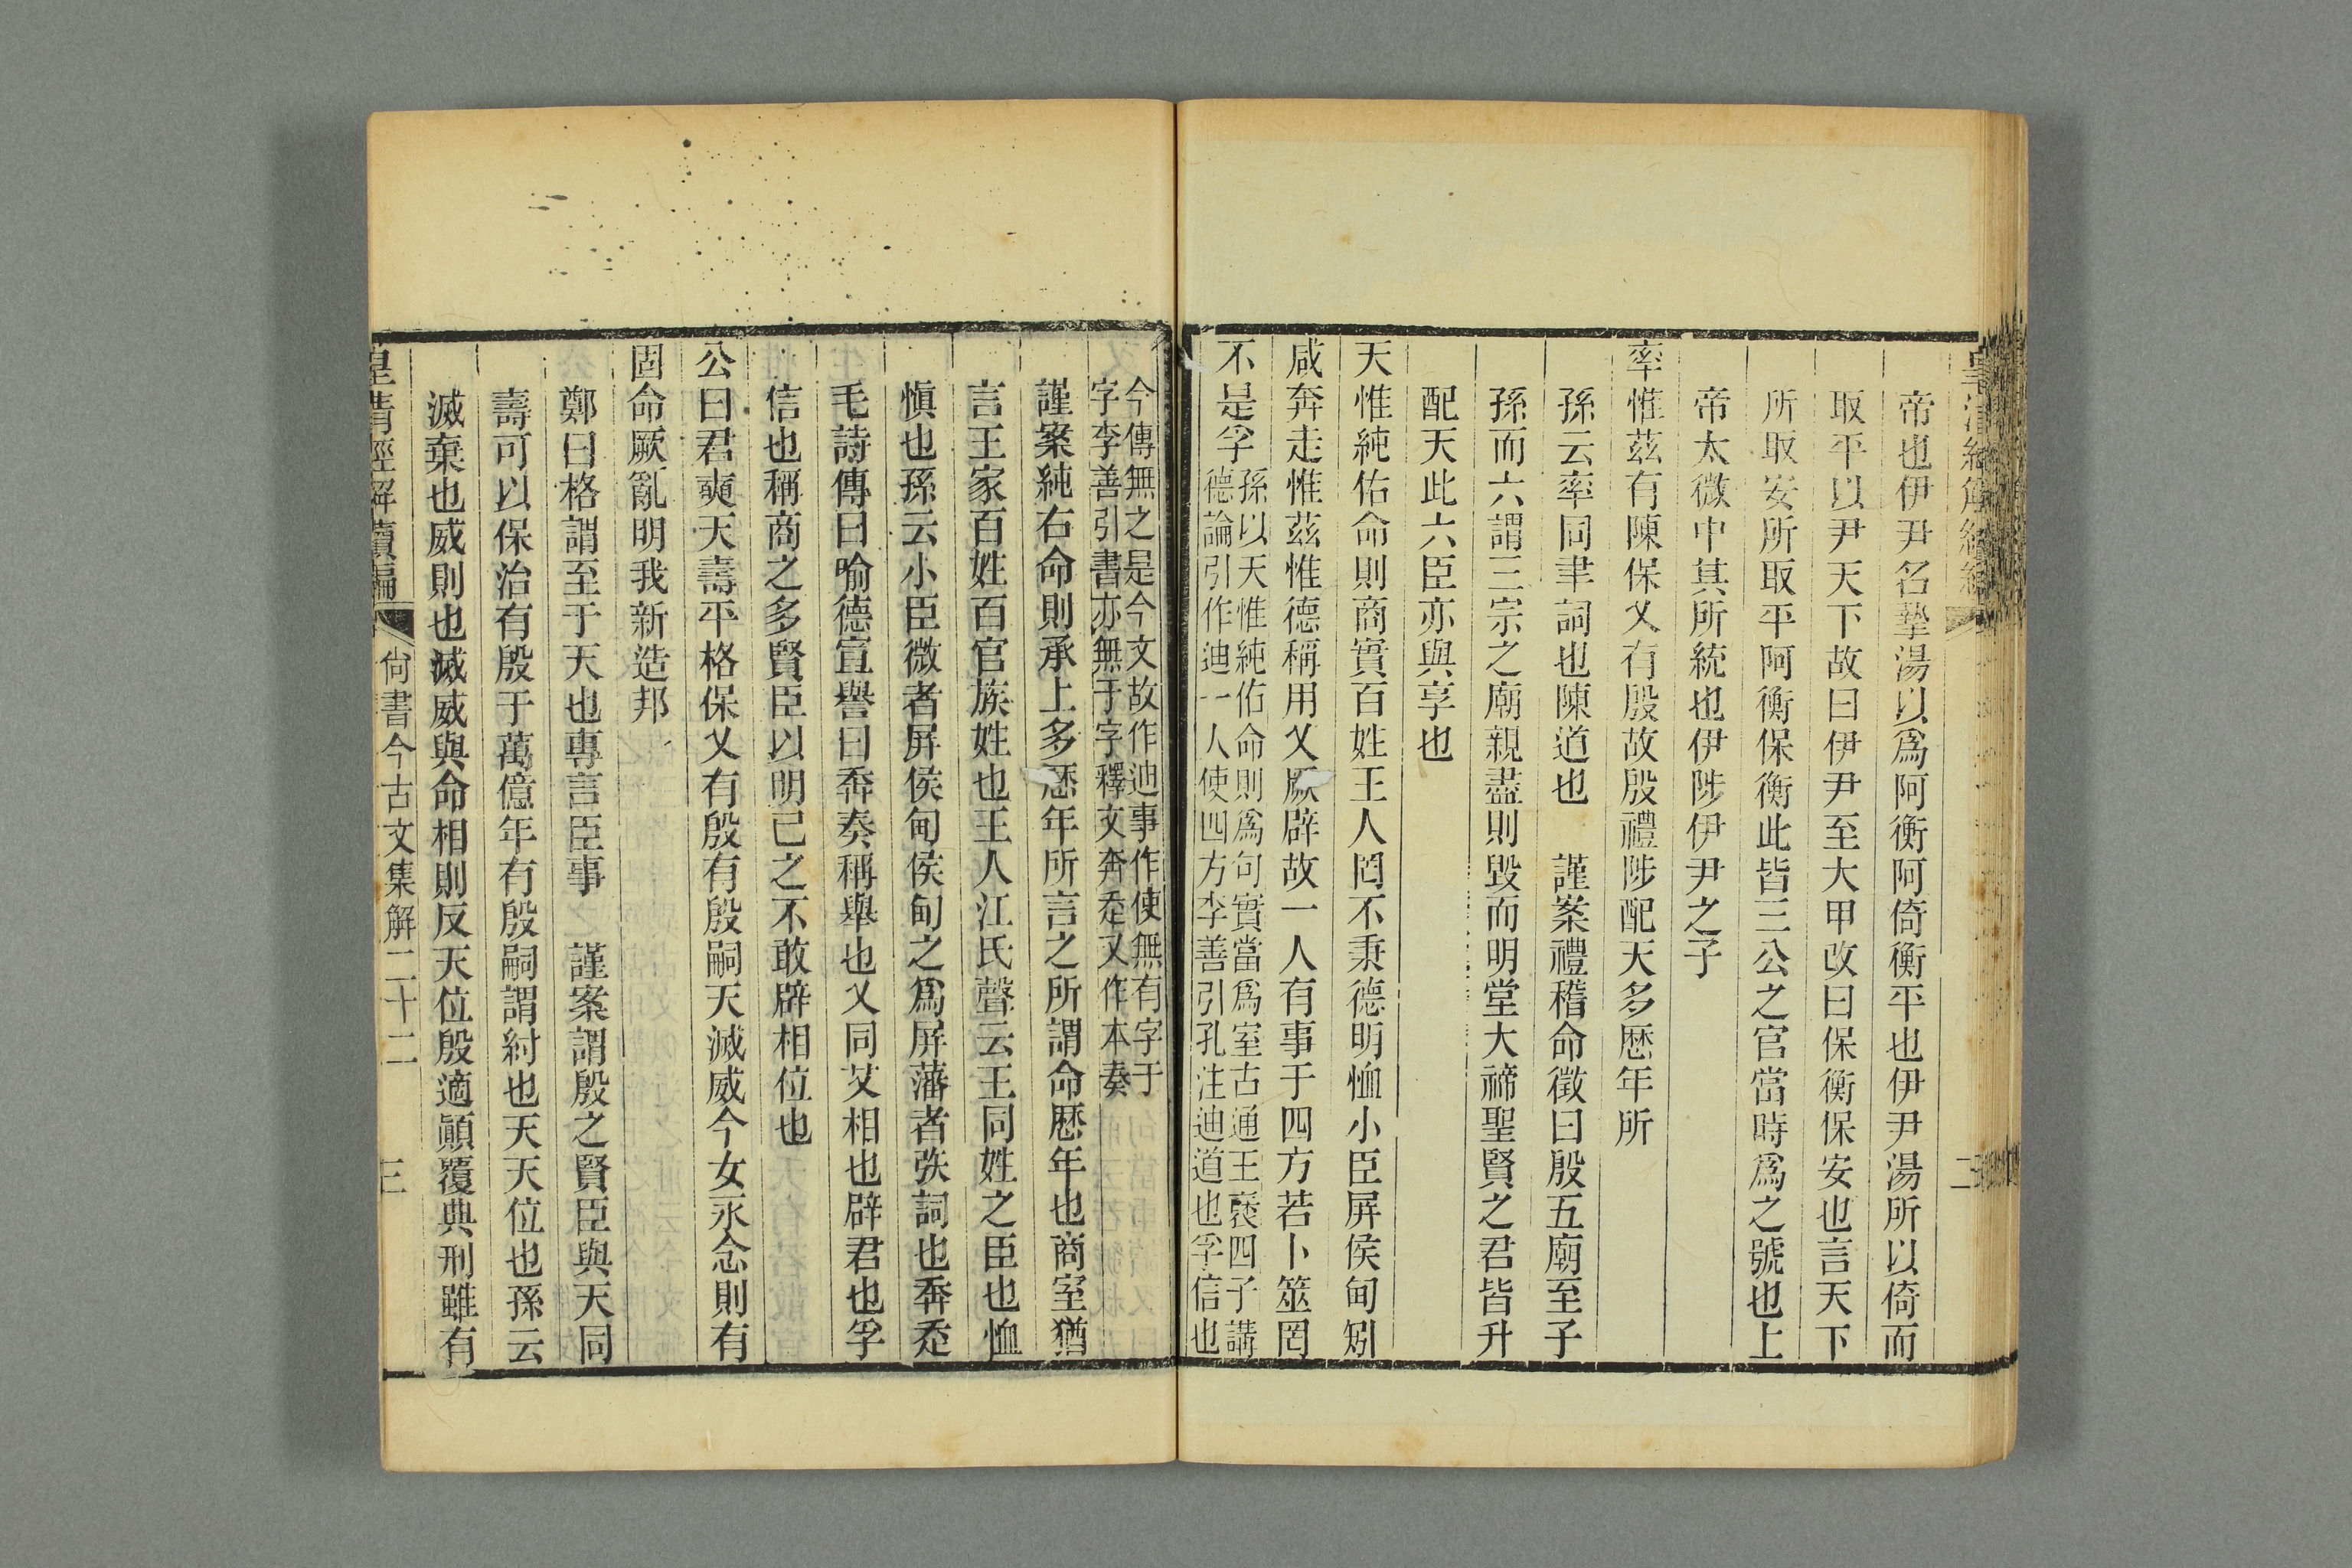 皇清經解續編
二
帝也伊尹名摯湯以爲阿衡阿倚衡平也伊尹湯所以倚而
取平以尹天下故曰伊尹至大甲改曰保衡保安也言天下
所取安所取平阿衡保衡此皆三公之官當時爲之號也上
帝太微中其所統也伊陟伊尹之子
率惟茲有陳保乂有殷故殷禮陟配天多歷年所
孫云率同聿詞也陳道也　謹案禮稽命徵曰殷五廟至子
孫而六謂三宗之廟親盡則毀而明堂大禘聖賢之君皆升
配天此六臣亦與享也
天惟純佑命則商實百姓王人罔不秉德明恤小臣屏侯甸矧
咸奔走惟茲惟德稱用乂厥辟故一人有事于四方若卜筮罔
不是孚
孫以天惟純佑命則爲句實當爲室古通王襃四子講
德論引作迪一人使四方李善引孔注迪道也孚信也
今傳無之是今文故作迪事作使無有字于
字李善引書亦無于字釋文奔走又作本奏
謹案純右命則承上多歷年所言之所謂命歷年也商室猶
言王家百姓百官族姓也王人江氏聲云王同姓之臣也恤
愼也孫云小臣微者屏侯甸侯甸之爲屏藩者矤詞也奔走
毛詩傳曰喻德宣譽曰奔奏稱舉也乂同艾相也辟君也孚
信也稱商之多賢臣以明己之不敢辟相位也
公曰君奭天壽平格保乂有殷有殷嗣天滅威今女永念則有
固命厥亂明我新造邦
鄭曰格謂至于天也專言臣事　謹案謂殷之賢臣與天同
壽可以保治有殷于萬億年有殷嗣謂紂也天天位也孫云
滅棄也威則也滅威與命相則反天位殷適顚覆典刑雖有
皇清經解續編
尙書今古文集解二十二
三